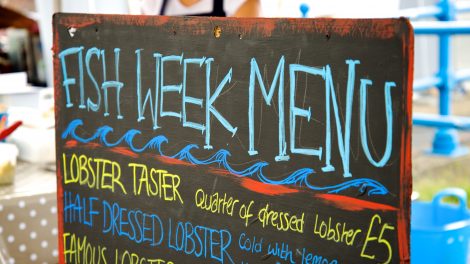 FISH WEEK MENU
LOBSTER TASTER Quarter of dressed Lobster £5
HALF DRESSED LOBSTER Cold with lemon
FAMOUS LOBSTER